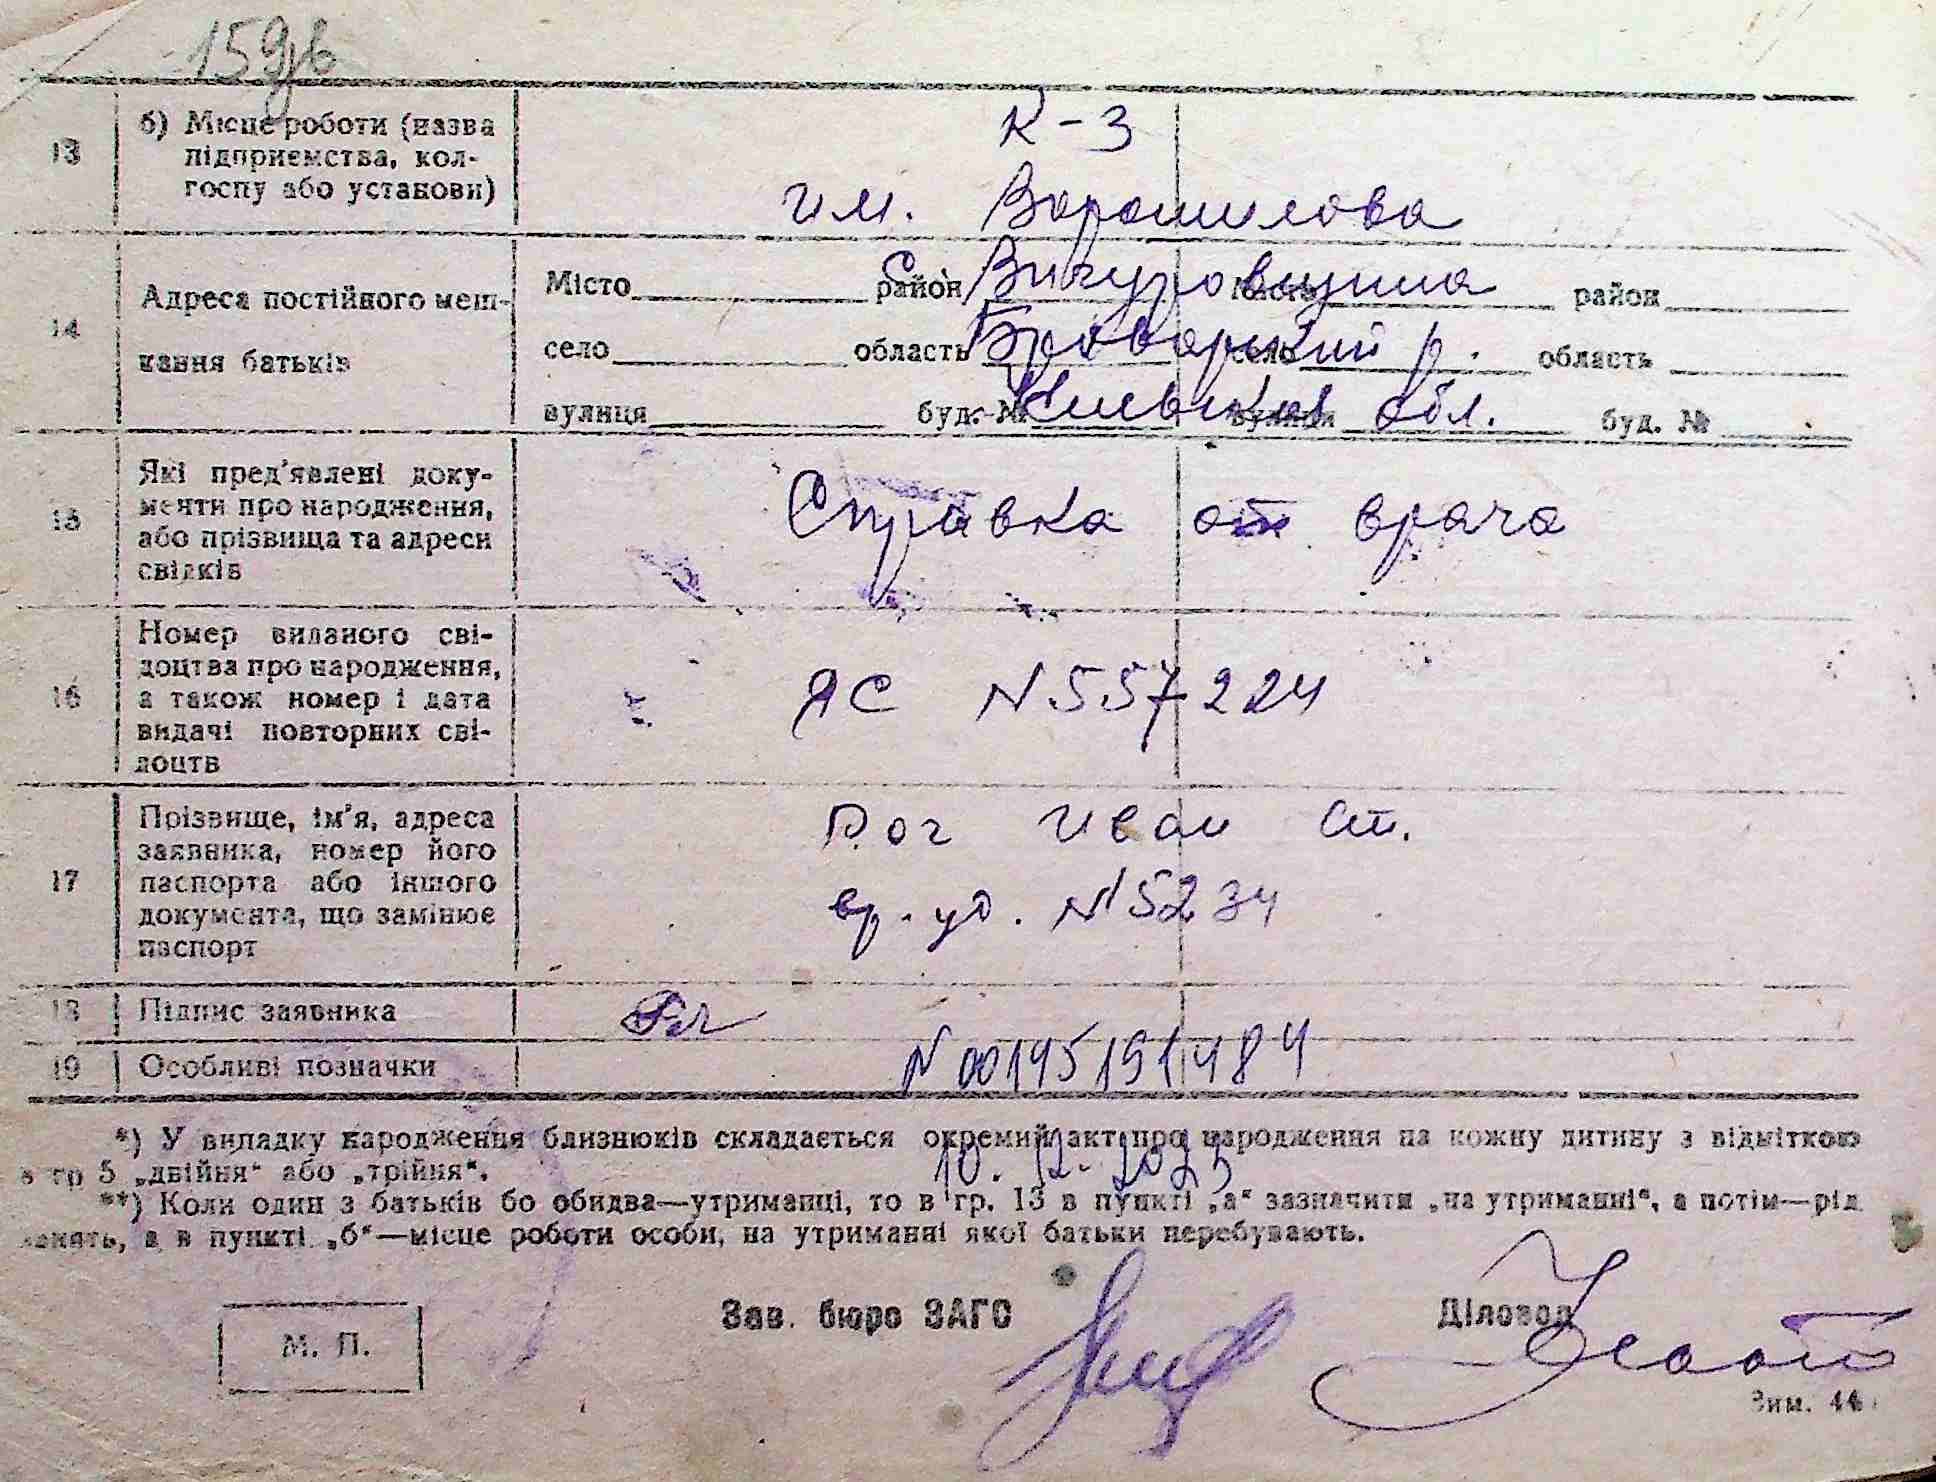 159зв
13
б) Місце роботи (назва
підприємства, кол-
госпу або установи)
К-З
им. Ворошилова
14
Адреса постійного меш-
кання батьків
Місто район Місто район
с. Вигуровщина
село область село область
Броварский р.
вулиця буд. № вулиця буд. №
Киевская обл.
15
Які пред'явлені доку-
менти про народження,
або прізвища та адреси
свідків
Справка от врача
16
Номер виданого сві-
доцтва про народження,
а також номер і дата
видачі повторних сві-
доцтв
ЯС N 557224
17
Прізвище, ім'я, адреса
заявника, номер його
паспорта або іншого
документа, що замінює
паспорт
Рог Иван Ст.
вр. уд. N 5234
18
Підпис заявника
19
Особливі позначки
N 00145191484
10.12.2025
*) У випадку народження близнюків складається окремий акт про народження на кожну дитину з відміткою
в гр 5 „двійня“ або „трійня“.
**) Коли один з батьків бо обидва—утриманці, то в гр. 13 в пункті „а“ зазначити „на утриманні“, а потім—рід
занять, а в пункті „б“—місце роботи особи, на утриманні якої батьки перебувають.
М. П.
Зав. бюро ЗАГС
Діловод
Зим. 44